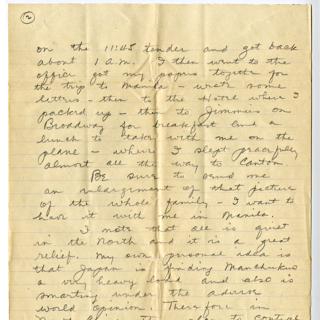 2
on the 11:45 tender and got back
about 1 A.M. I then went to the
office got my papers together for
the trip to Manila - wrote some
letters - then to the Hotel where I
packed up - then to Jimmies on
Broadway for breakfast and a
lunch to take with me on the
plane - where I slept gracefully
almost all the way to Canton.
Be sure to send me
an enlargement of that picture
of the whole family - I want to
have it with me in Manila.
I note that all is quiet
in the North and it is a great
relief. My own personal idea is
that Japan is finding Manchukuo
a very heavy load and also is
smarting under the adverse
world opinion. Therefore in